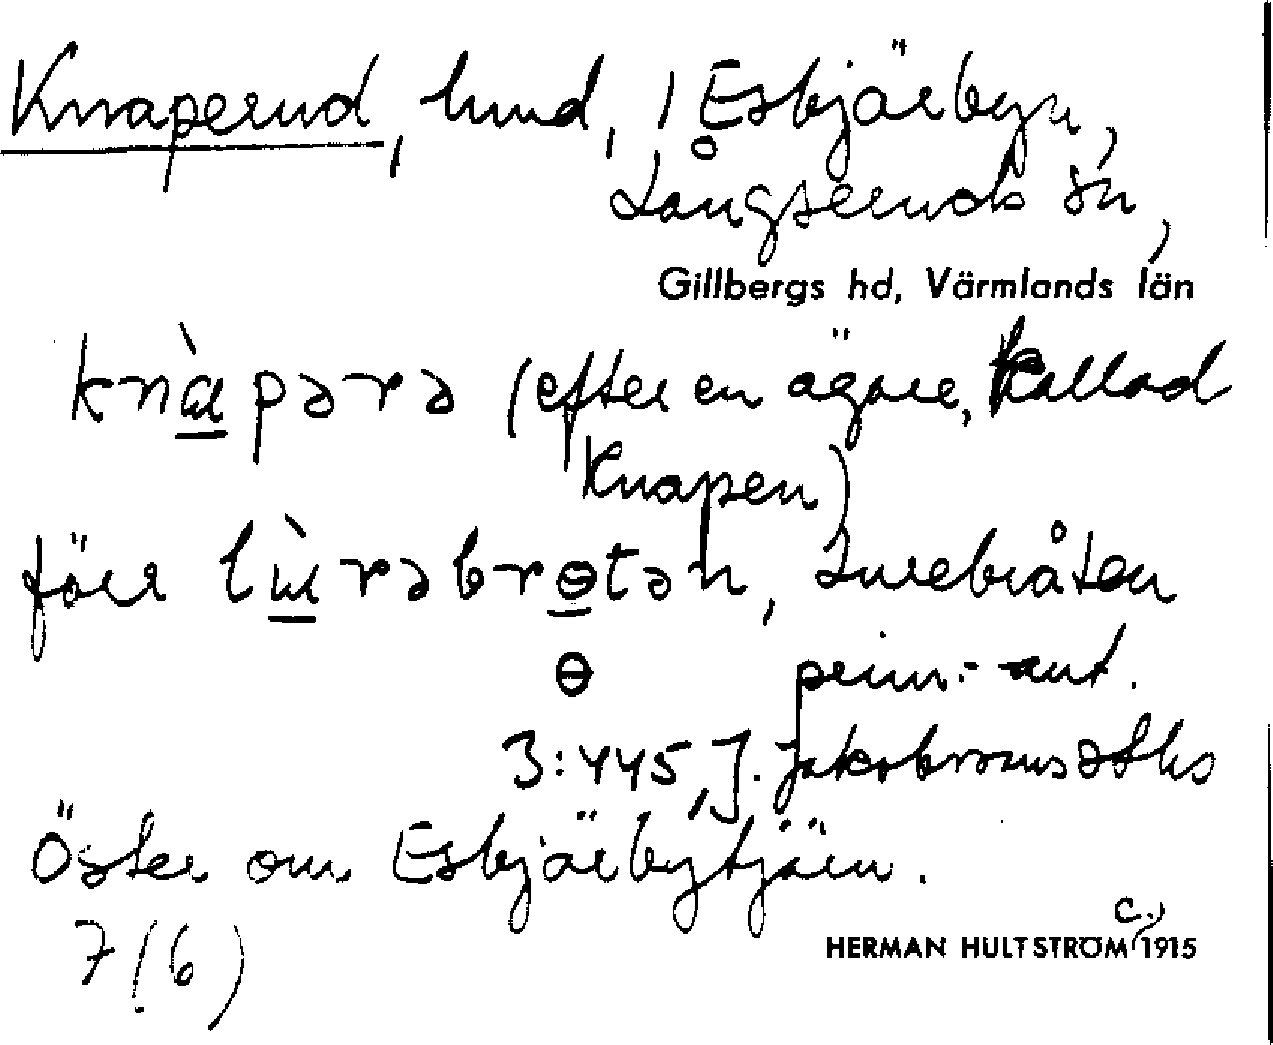 Knaperud, lund, i Esbjärbyn,
Långseruds sn,
Gillbergs hd, Värmlands län
knàpərə (efter en ägare, kallad
Knapen)
förr lùrəbrɵtən, Lurebråten
ɵ
3:445, J. Jakobssons
Öster om Esbjärbytjärn.
7(6)
C.
HERMAN HULTSTRÖM 1915